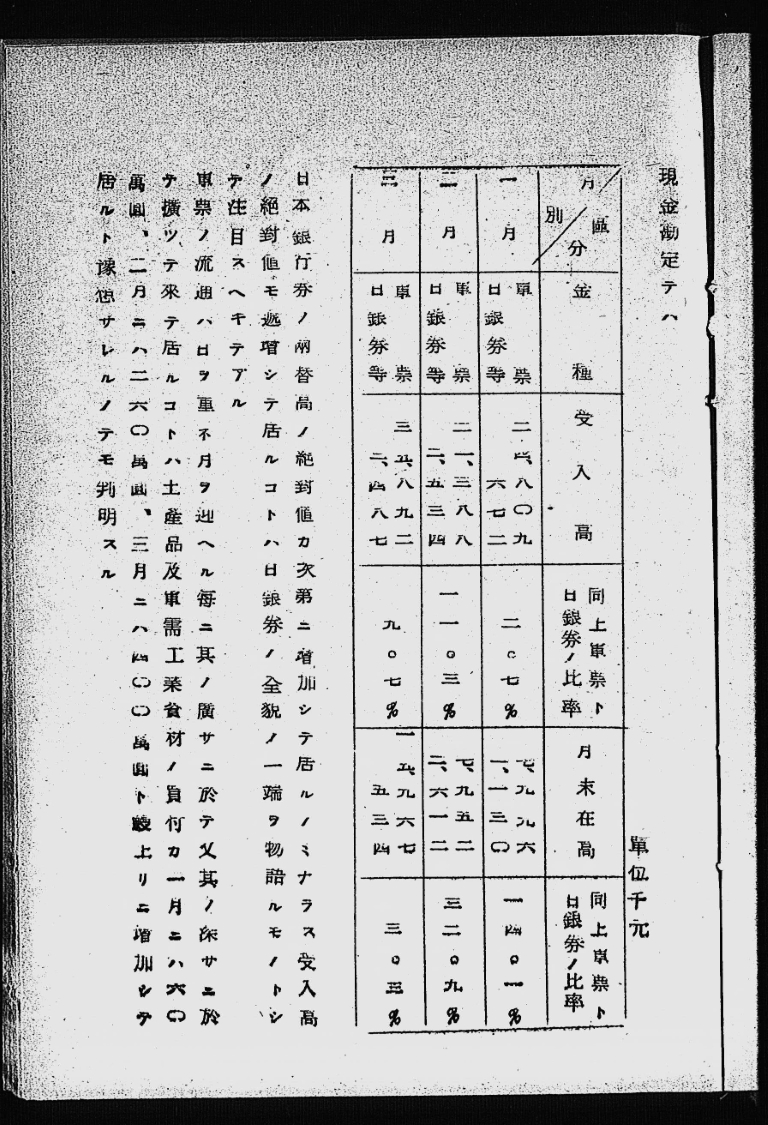 現金勘定テハ
單位千元
月別 區分
金種
受入高
同上軍票ト
日銀券ノ比率
月末在高
同上軍票ト
日銀券ノ比率
一月
軍票 二四、八〇九 七、九九六
日銀券等 六七二 二。七% 一、一三〇 一四。一%
二月
軍票 二一、三八八 七、九五二
日銀券等 二、五三四 一一。三% 二、六一二 三二。九%
三月
軍票 三五、八九二 一五、九六七
日銀券等 三、四八七 九。七% 五三四 三。三%
日本銀行券ノ兩替高ノ絶對値カ次第ニ增加シテ居ルノミナラス受入高
ノ絶對値モ遞增シテ居ルコトハ日銀券ノ全貌ノ一端ヲ物語ルモノトシ
テ注目スヘキテアル
軍票ノ流通ハ日ヲ重ネ月ヲ迎ヘル每ニ其ノ廣サニ於テ又其ノ深サニ於
テ擴ツテ來テ居ルコトハ土產品及軍需工業食材ノ買付カ一月ニハ六〇
萬圓、二月ニハ二六〇萬圓、三月ニハ四〇〇萬圓ト鰻上リニ增加シテ
居ルト豫想サレルノテモ判明スル